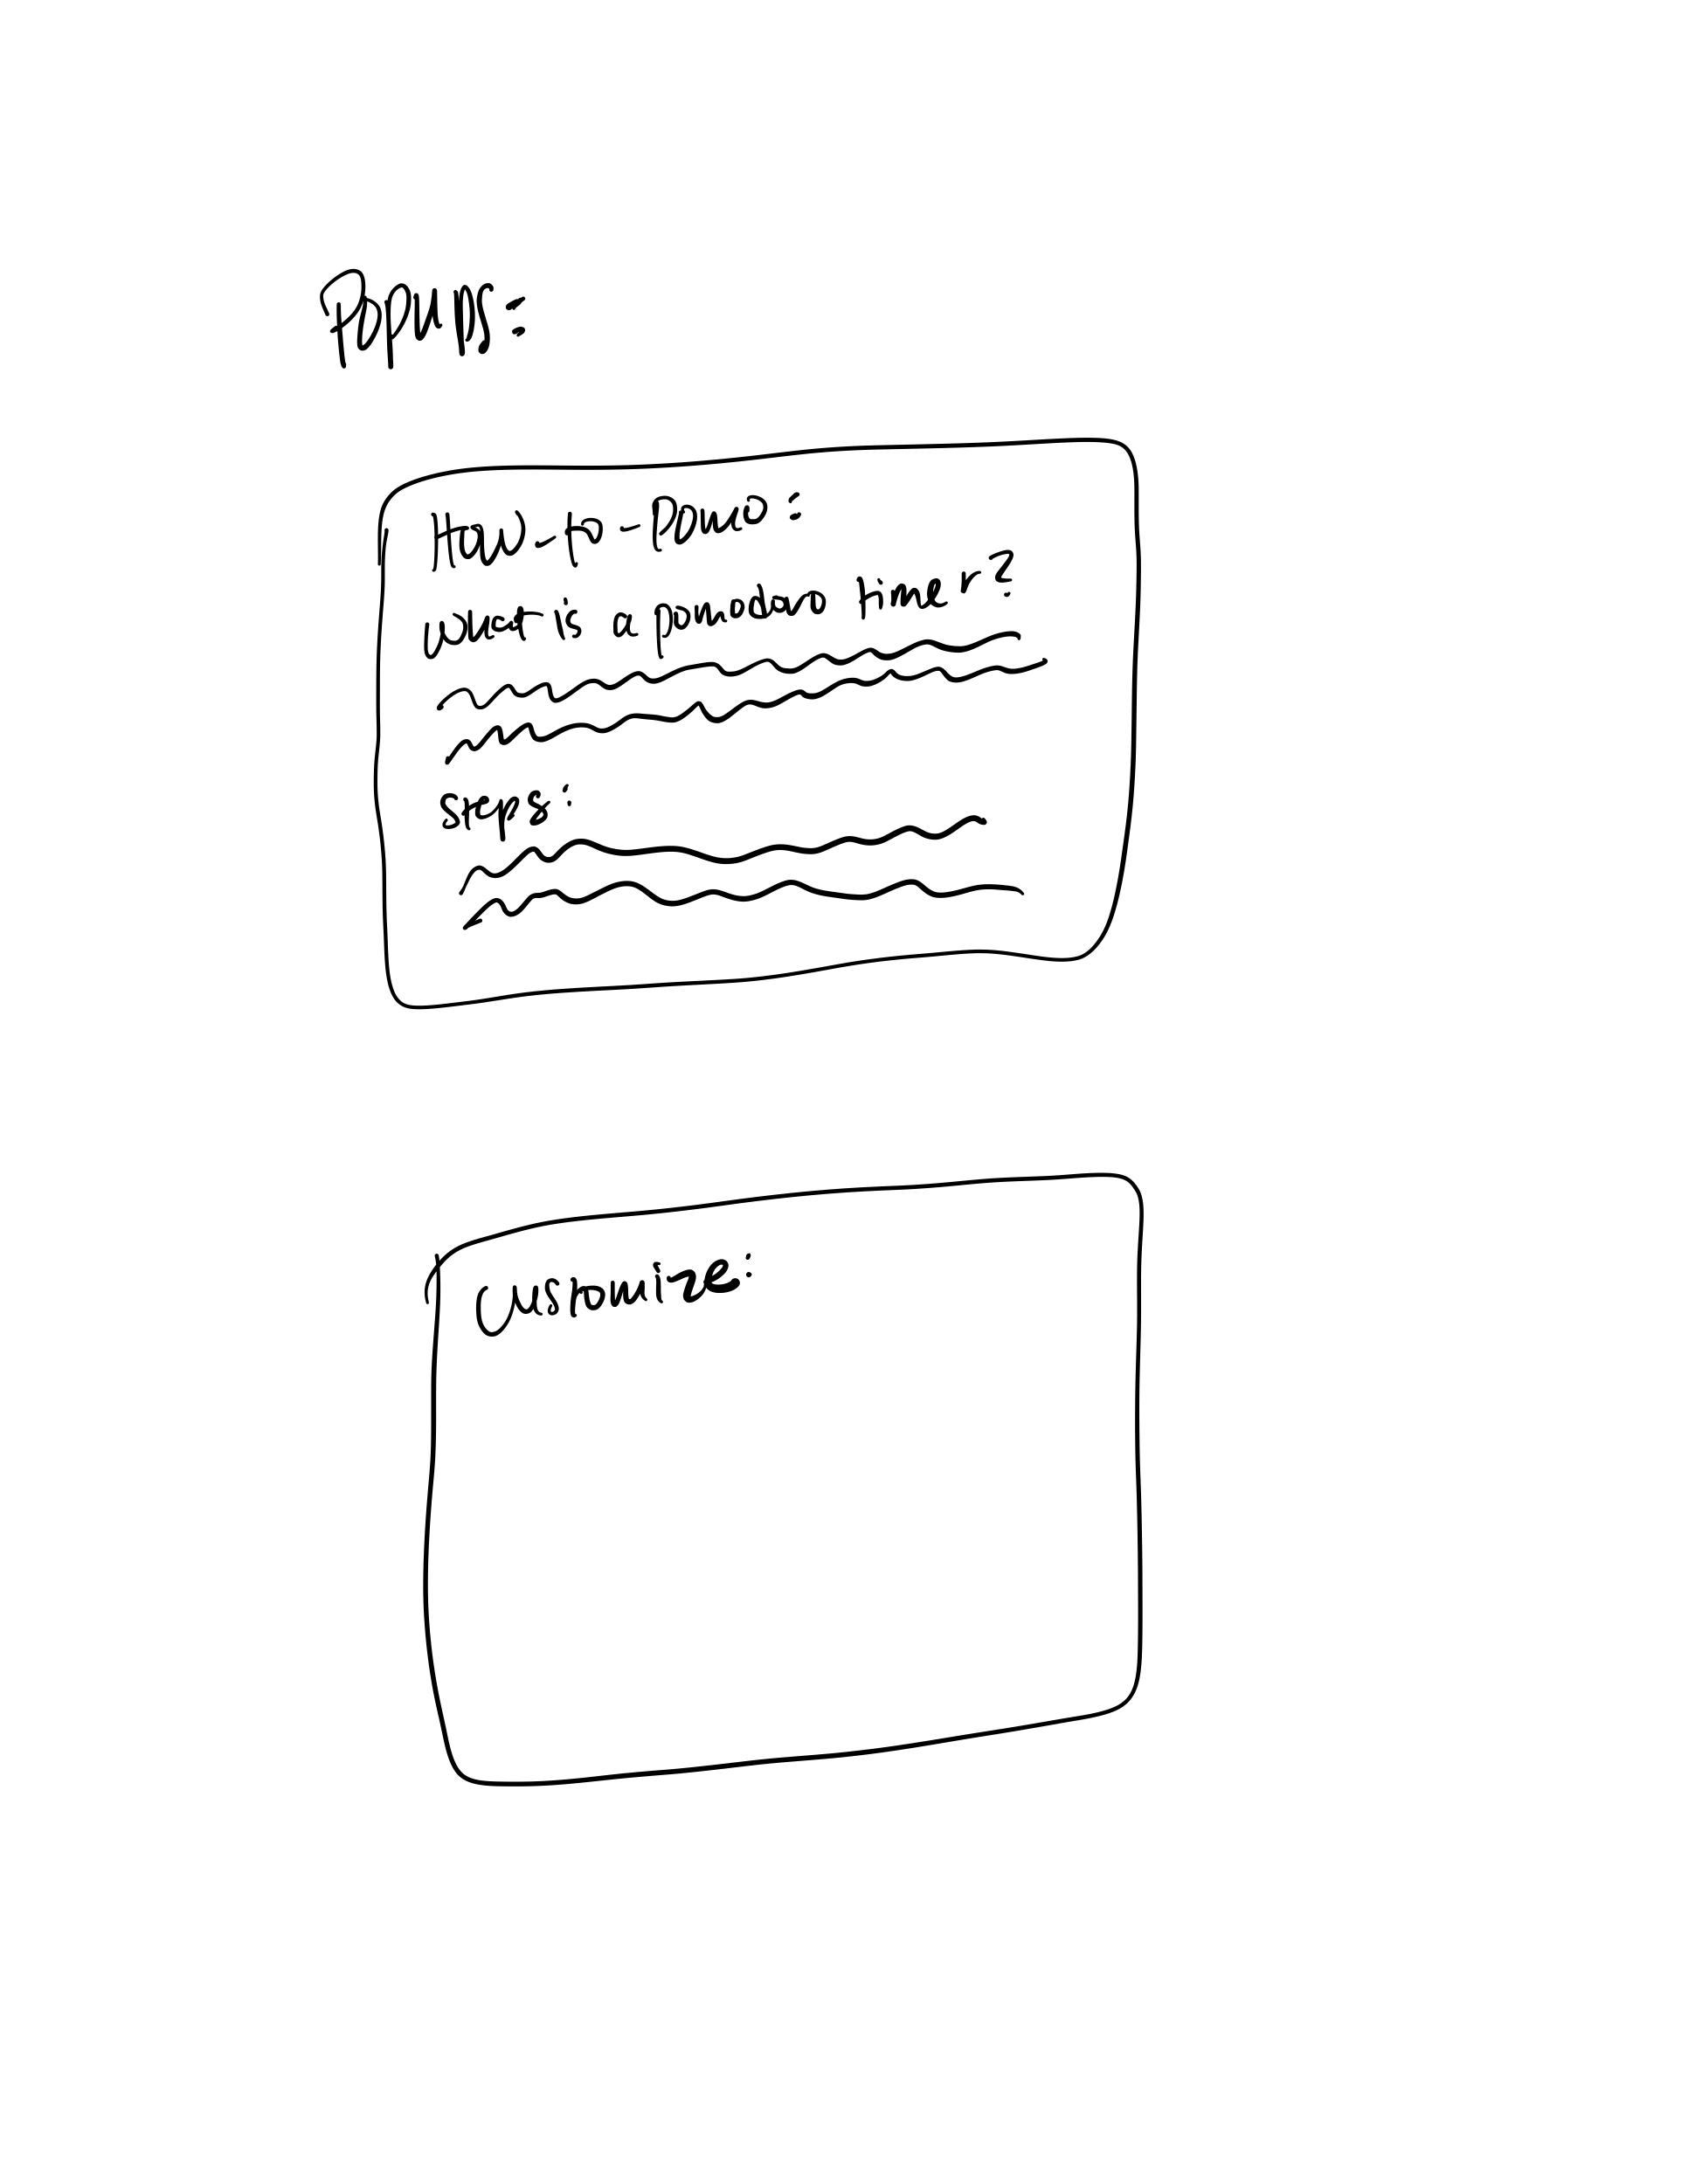 Popups:
How-to-Pomo:
What is a pomodoro timer?
Steps:
Customize: